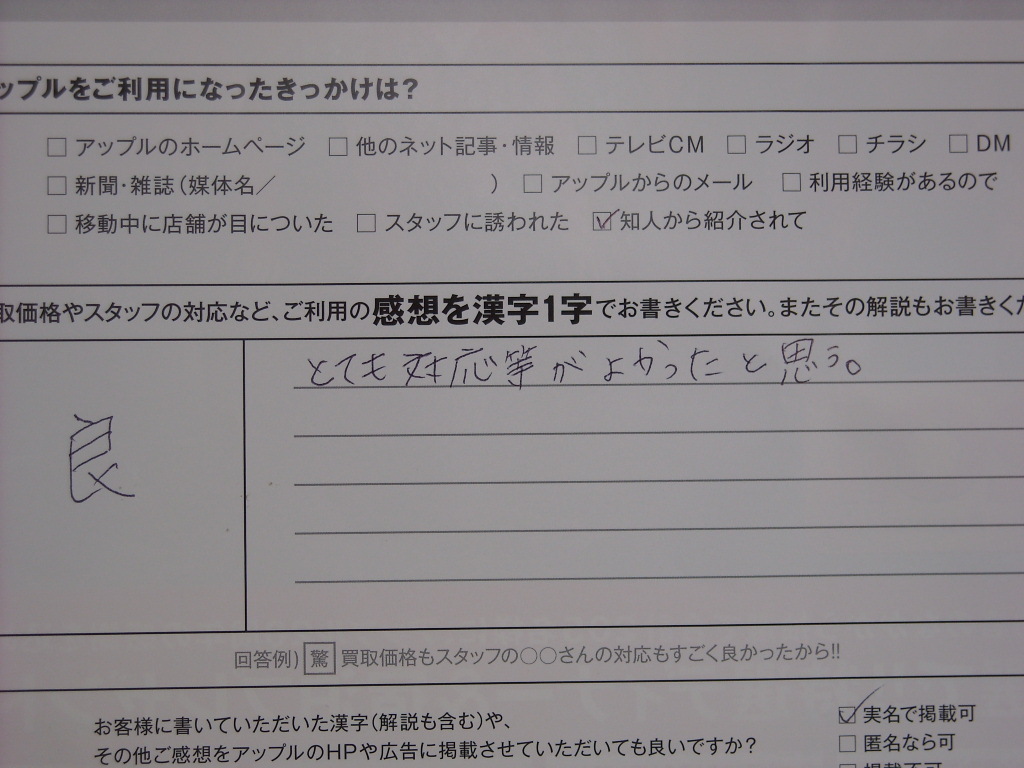 ップルをご利用になったきっかけは？
□ アップルのホームページ □ 他のネット記事・情報 □ テレビCM □ ラジオ □ チラシ □ DM
□ 新聞・雑誌（媒体名／　　　　　　　　　） □ アップルからのメール □ 利用経験があるので
□ 移動中に店舗が目についた □ スタッフに誘われた ☑ 知人から紹介されて
取価格やスタッフの対応など、ご利用の感想を漢字1字でお書きください。またその解説もお書きくだ
とても対応等がよかったと思う。
良
回答例）驚 買取価格もスタッフの○○さんの対応もすごく良かったから!!
お客様に書いていただいた漢字（解説も含む）や、
その他ご感想をアップルのHPや広告に掲載させていただいても良いですか？
☑ 実名で掲載可
□ 匿名なら可